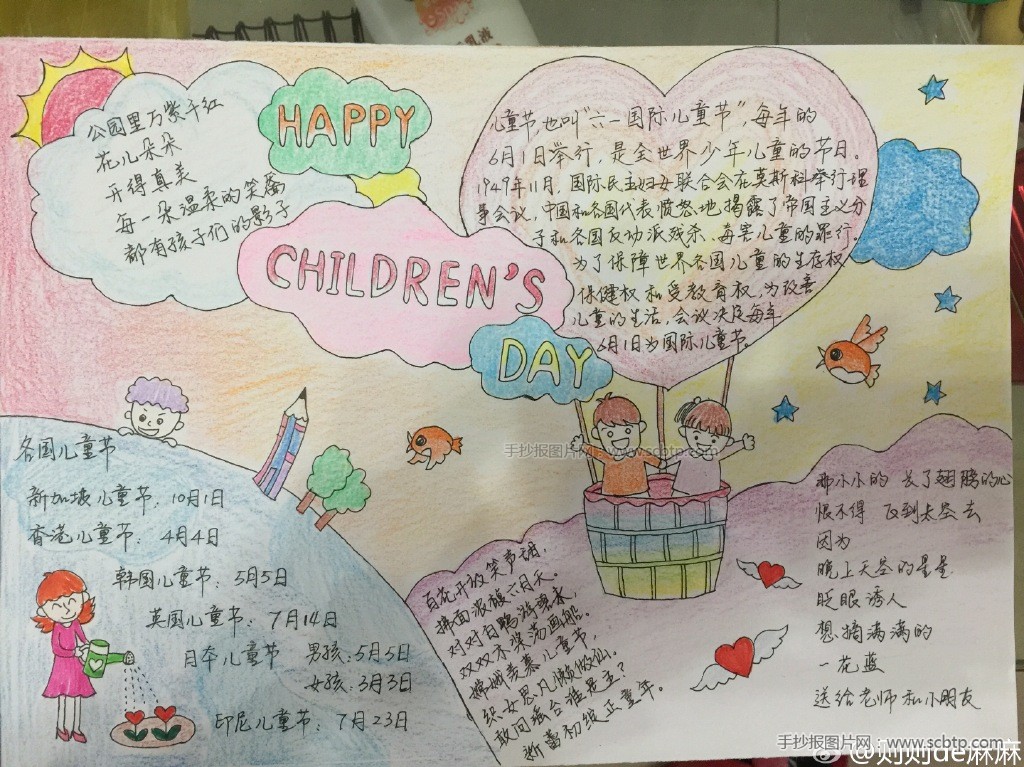 公园里万紫千红
花儿朵朵
开得真美
每一朵温柔的笑靥
都有孩子们的影子
HAPPY
CHILDREN'S
DAY
儿童节,也叫"六一国际儿童节",每年的
6月1日举行,是全世界少年儿童的节日。
1949年11月,国际民主妇女联合会在莫斯科举行理
事会议,中国和各国代表愤怒地揭露了帝国主义分
子和各国反动派残杀、毒害儿童的罪行。
为了保障世界各国儿童的生存权
保健权和受教育权,为改善
儿童的生活,会议决定每年
6月1日为国际儿童节。
各国儿童节
新加坡儿童节:10月1日
香港儿童节:4月4日
韩国儿童节:5月5日
英国儿童节:7月14日
日本儿童节 男孩:5月5日
女孩:3月3日
印尼儿童节:7月23日
百花开放笑声甜,
拂面派馥六月天。
对对白鹅游碧水,
双双木桨荡画船。
嫦娥羡慕儿童节,
织女思凡懒做仙。
敢问瑶台谁是主?
新蕾初绽正童年。
那小小的 长了翅膀的心
恨不得 飞到太空去
因为
晚上天空的星星
眨眼诱人
想摘满满的
一花蓝
送给老师和小朋友
手抄报图片网:www.scbtp.com
手抄报图片网:www.scbtp.com
@则则de麻麻
乳液